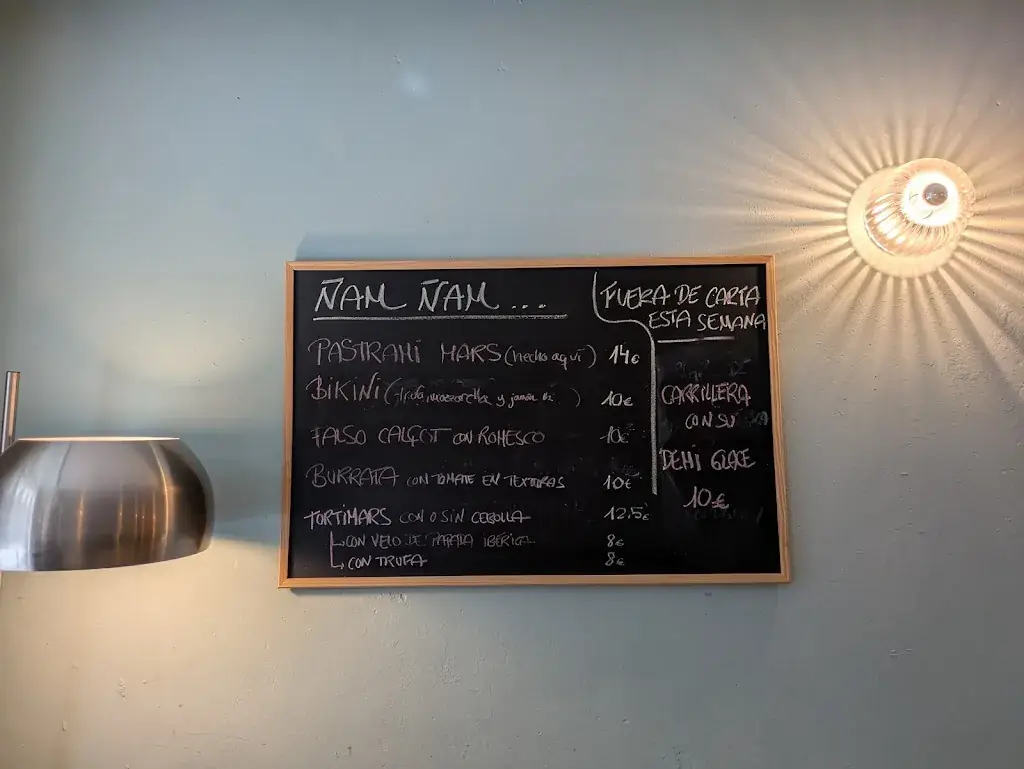 ÑAM ÑAM...
PASTRAMI MARS (hecho aquí) 14€
BIKINI (trufa, mozzarella y jamón ) 10€
FALSO CALÇOT CON ROMESCO 10€
BURRATA CON TOMATE EN TEXTURAS 10€
TORTIMARS CON O SIN CEBOLLA 12,5€
CON VELO DE PAPADA IBÉRICA 8€
CON TRUFA 8€
FUERA DE CARTA
ESTA SEMANA
CARRILLERA
CON SU
DEMI GLACE
10€